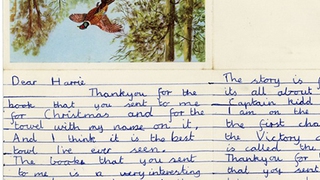 Dear Harrie
Thankyou for the
book that you sent to me
for Christmas and for the
towel with my name on it,
And I think it is the best
towl I've ever seen.
The books that you sent
to me is a very interesting
The story is f
its all about
Captain kidd
I am on the
the first cha
the Victory o
is called the
Thankyou for
that you sent